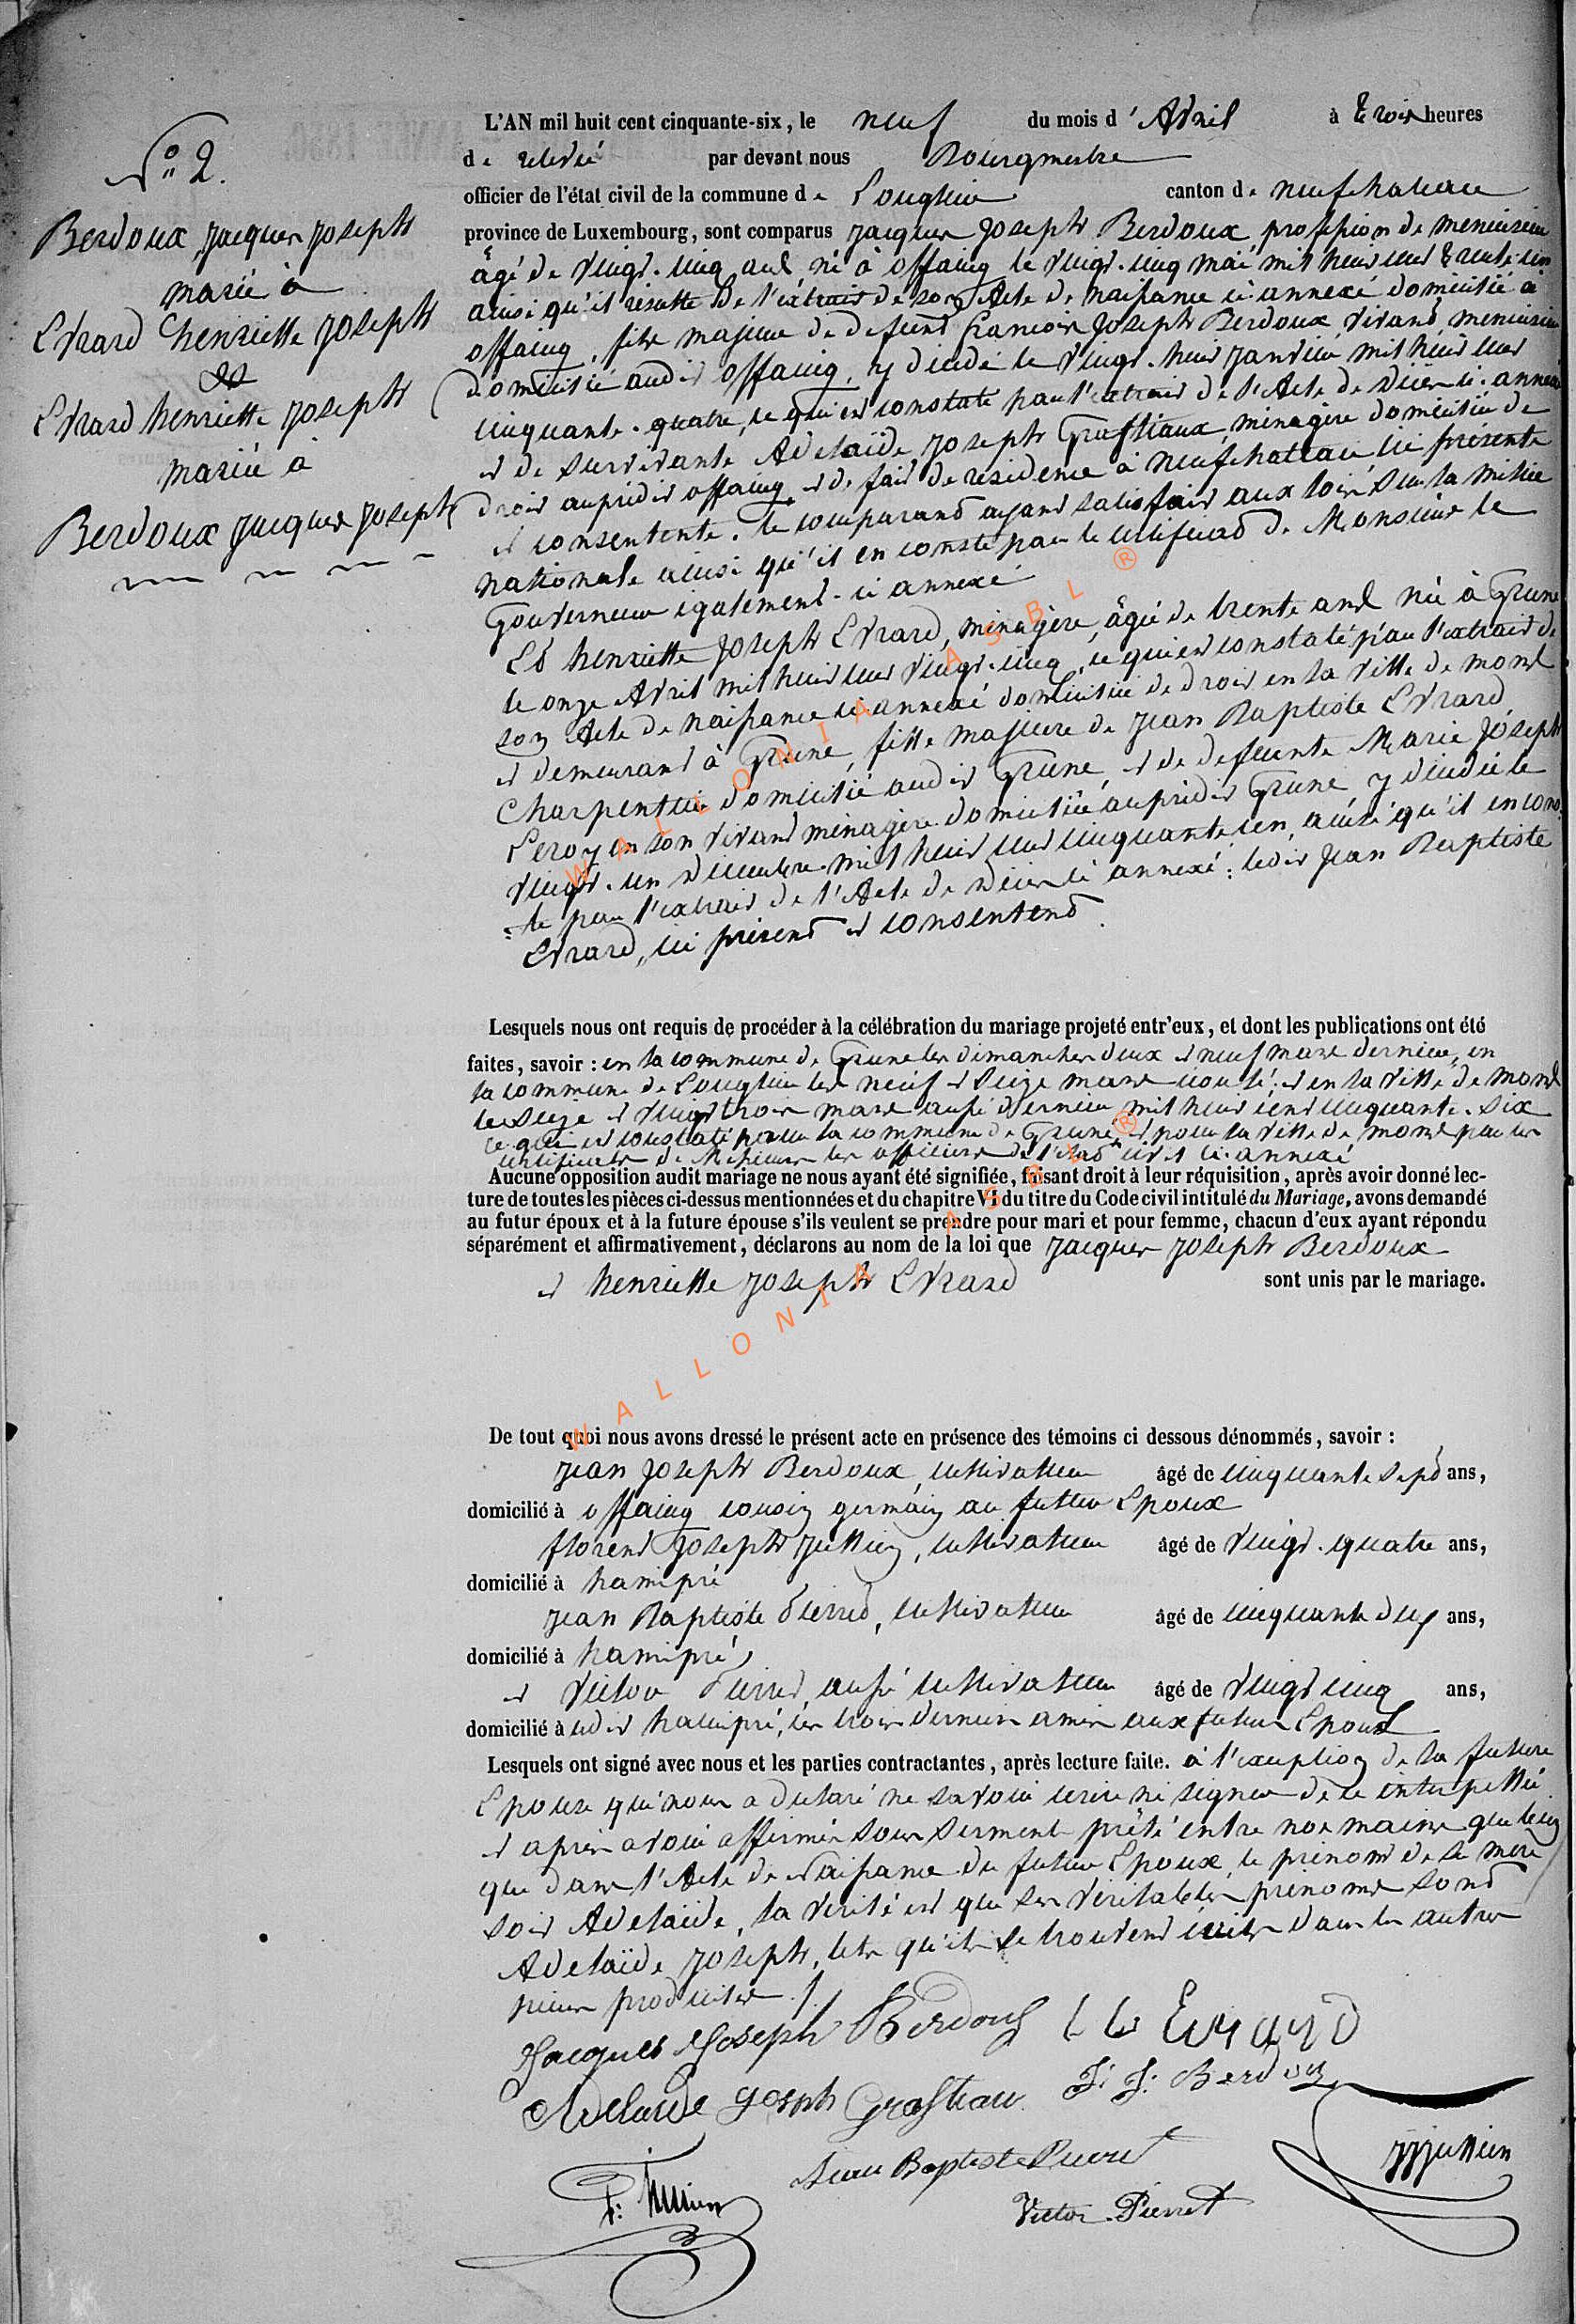 N° 2.
Berdoux, Jacques Joseph
marié à
Evrard henriette Joseph
&
Evrard henriette Joseph
mariée à
Berdoux Jacques Joseph
L'AN mil huit cent cinquante-six, le neuf du mois d'Avril à trois heures
de relevée par devant nous Bourgmestre
officier de l'état civil de la commune de Longlier canton de neufchateau
province de Luxembourg, sont comparus Jacques Joseph Berdoux, profession de menuisier
âgé de vingt-cinq ans né à offaing le vingt-cinq mai mil huit cent trente un
ainsi qu'il résulte de l'extrait de son Acte de naissance ci-annexé domicilié à
offaing, fils majeur de defunt françois Joseph Berdoux, vivant, menuisier
domicilié audit offaing, y décédé le vingt-huit janvier mil huit cent
cinquante-quatre, ce qui est constaté par l'extrait de l'Acte de Décès ci-annexé
et de survivante Adelaïde Joseph Grastiaux, ménagère domiciliée de
droit auprédit offaing, et de fait de residence à neufchateau, ici présente
et consentente. le comparant ayant satisfait aux lois sur la milice
nationale ainsi qu'il en conste par le certificat de Monsieur le
Gouverneur également ci annexé
Et henriette Joseph Evrard, ménagère, âgée de trente ans née à Grune
le onze Avril mil huit cent vingt-cinq, ce qui est constaté par l'extrait de
son Acte de naissance ci annexé domiciliée de droit en la ville de mons
et demeurant à Grune, fille majeure de Jean Baptiste Evrard,
Charpentier domicilié audit Grune, et de defunte Marie Joseph
Leroy en son vivant ménagère domiciliée auprédit Grune y décédée le
vingt-un Décembre mil huit cent cinquante un, ainsi qu'il en cons-
-te par l'extrait de l'Acte de Décès ci annexé: ledit Jean Baptiste
Evrard, ici présent et consentent.
Lesquels nous ont requis de procéder à la célébration du mariage projeté entr'eux, et dont les publications ont été
faites, savoir : en la commune de Grune les dimanches deux et neuf mars dernier, en
la commune de Longlier les neuf et seize mars écoulé: et en la ville de mons
les seize et vingt trois mars aussi dernier mil huit cent cinquante-six
ce qui est constaté pour la commune de Grune, et pour la ville de mons par les
certificats de Messieurs les officiers de l'état civil ci-annexé
Aucune opposition audit mariage ne nous ayant été signifiée, faisant droit à leur réquisition, après avoir donné lec-
ture de toutes les pièces ci-dessus mentionnées et du chapitre VI du titre du Code civil intitulé du Mariage, avons demandé
au futur époux et à la future épouse s'ils veulent se prendre pour mari et pour femme, chacun d'eux ayant répondu
séparément et affirmativement, déclarons au nom de la loi que Jacques Joseph Berdoux
et henriette Joseph Evrard sont unis par le mariage.
De tout quoi nous avons dressé le présent acte en présence des témoins ci dessous dénommés, savoir :
Jean Joseph Berdoux, cultivateur âgé de cinquante sept ans,
domicilié à offaing cousin germain au futur Epoux
florent Joseph Jullien, cultivateur âgé de vingt-quatre ans,
domicilié à hamipré
Jean Baptiste Pierret, cultivateur âgé de cinquante deux ans,
domicilié à hamipré,
et Victor Pierret, aussi cultivateur âgé de vingt cinq ans,
domicilié à udit hamipré, les trois derniers amis aux futurs Epoux
Lesquels ont signé avec nous et les parties contractantes, après lecture faite. à l'exception de la future
Epouse qui nous a déclaré ne savoir ecrire ni signer de ce interpellée
et après avoir affirmé sous serment prêté entre nos mains que bien
que dans l'Acte de naissance du futur Epoux, le prénom de sa mère
soit Adelaïde, la verité est que ses véritables prénoms sont
Adelaïde Joseph, tels qu'ils se trouvent écrits dans les autres
pièces produites ./.
Jacques Joseph Berdoux Evrard
Adelaide Joseph Grastiau J: J: Berdoux
Jean Baptiste Pierret JJJullien
F: Jullien Victor Pierret
WALLONIA ASBL ®
WALLONIA ASBL ®